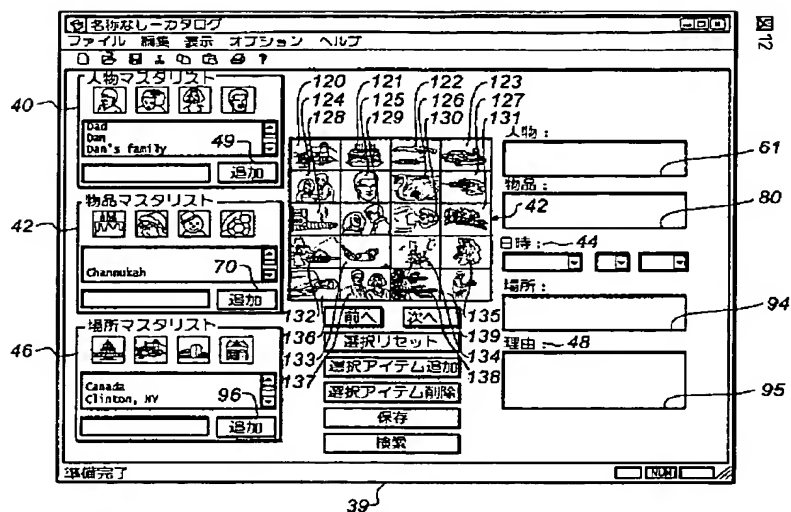 図12
名称なしーカタログ
ファイル 編集 表示 オプション ヘルプ
人物マスタリスト
40
Dad
Dan
Dan's family
49
追加
物品マスタリスト
42
Channukah
70
追加
場所マスタリスト
46
Canada
Clinton, NY
96
追加
120 121 122 123
124 125 126 127
128 129 130 131
42
132 前へ 次へ 135
136 139
133 選択リセット 134
137 138
選択アイテム追加
選択アイテム削除
保存
検索
人物:
61
物品:
80
日時: 44
場所:
94
理由: 48
95
準備完了
NUM
39